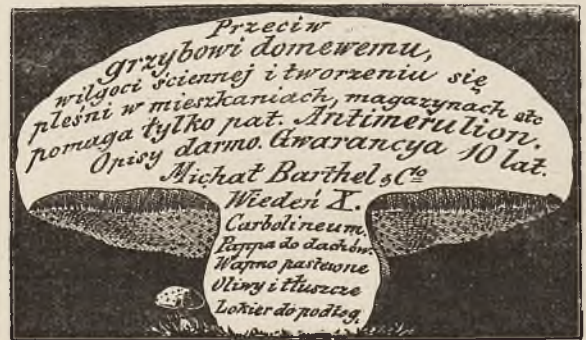 Przeciw
grzybowi domewemu,
wilgoci ściennej i tworzeniu się
pleśni w mieszkaniach, magazynach etc
pomaga tylko pat. Antimerulion.
Opisy darmo. Gwarancya 10 lat.
Michał Barthel & Cto
Wiedeń X.
Carbolineum.
Pappa do dachów.
Wapno pastewne
Oliwy i tłuszcze
Lokier do podłog.